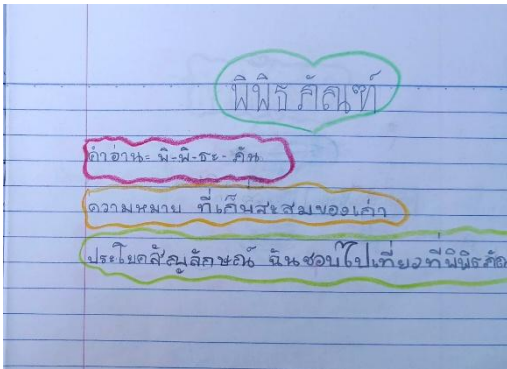 พิพิธภัณฑ์
คำอ่าน= พิ-พิ-ธะ-ภัน
ความหมาย ที่เก็บสะสมของเก่า
ประโยคสัญลักษณ์ ฉันชอบไปเที่ยวที่พิพิธภัณ